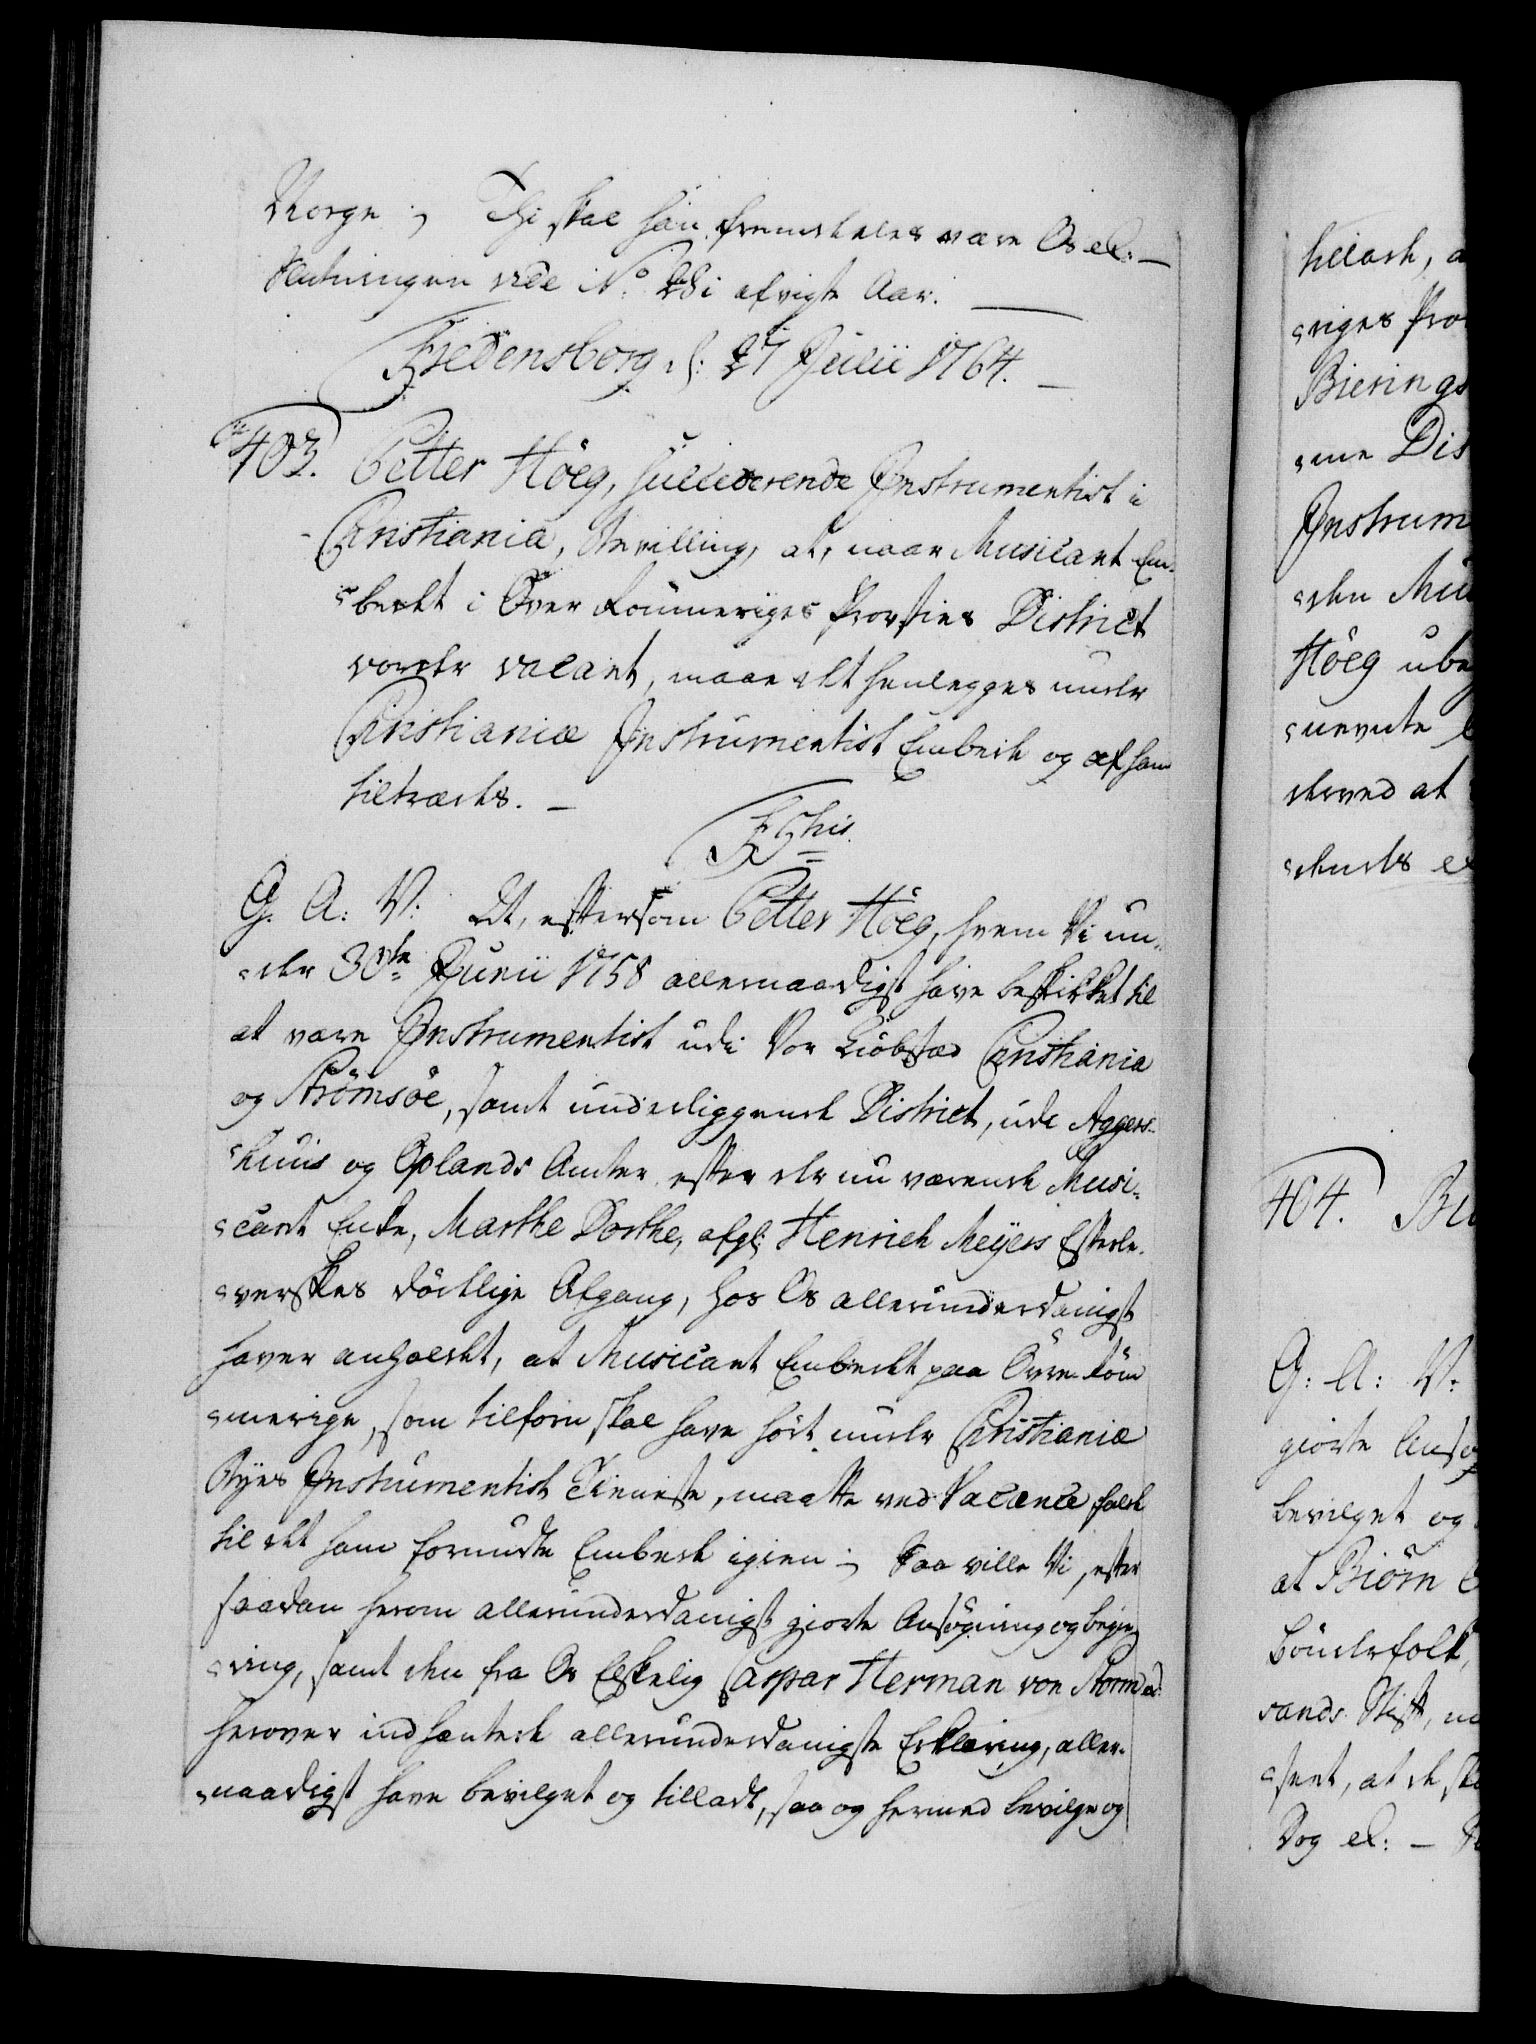 Norge; Thi skal han fremdeles være Os etc: —
Slutningen vide No. 281 afvigte Aar. —
Fredensborg d: 27 Julii 1764. —
403. Petter Höeg, succederende Instrumentist i
Christiania, Bevilling, at, naar Musicant Em-
bedet i Over Rommeriges Provsties District
vorder vacant, maae det henlegges under
Christianiæ Instrumentist Embede og af ham
tiltrædes. —
F 5this
G. A: V: At, eftersom Petter Höeg, hvem Vi un-
der 30te Junii 1758 allernaadigst have beskikket til
at være Instrumentist udi Vor Kiöbstæd Christiania
og Strömsöe, samt underliggende District, udi Aggers-
huus og Oplands Amter efter der nu værende Musi-
cant Enke, Marthe Dorthe, afgl: Henrich Meyers Efterle-
verskes dödelige Afgang, hos Os allerunderdanigst
haver anholdet, at Musicant Embedet paa Övre Röm
merige, som tilforn skal have hört under Christianiæ
Byes Instrumentist Tieneste, maatte ved Vacance falde
til det ham forundte Embede igien; Saa ville Vi, efter
saadan herom allerunderdanigst giorte Ansögning og begie
ring, samt den fra Os Elskelig Caspar Herman von Storm
herover indhentede allerunderdanigste Erklæring, aller-
naadigst have bevilget og tilladt, saa og hermed bevilge og
tillade, a
riges Pro
Bierings
me Dis
Instrum
den Mu
Höeg ube
nevnte
derved at
dendes
404. Bi
G: A: V:
giorte Ansö
bevilget og
at Biörn
Bönderfolk,
sands Stift,
sent, at de
Dog etc: —